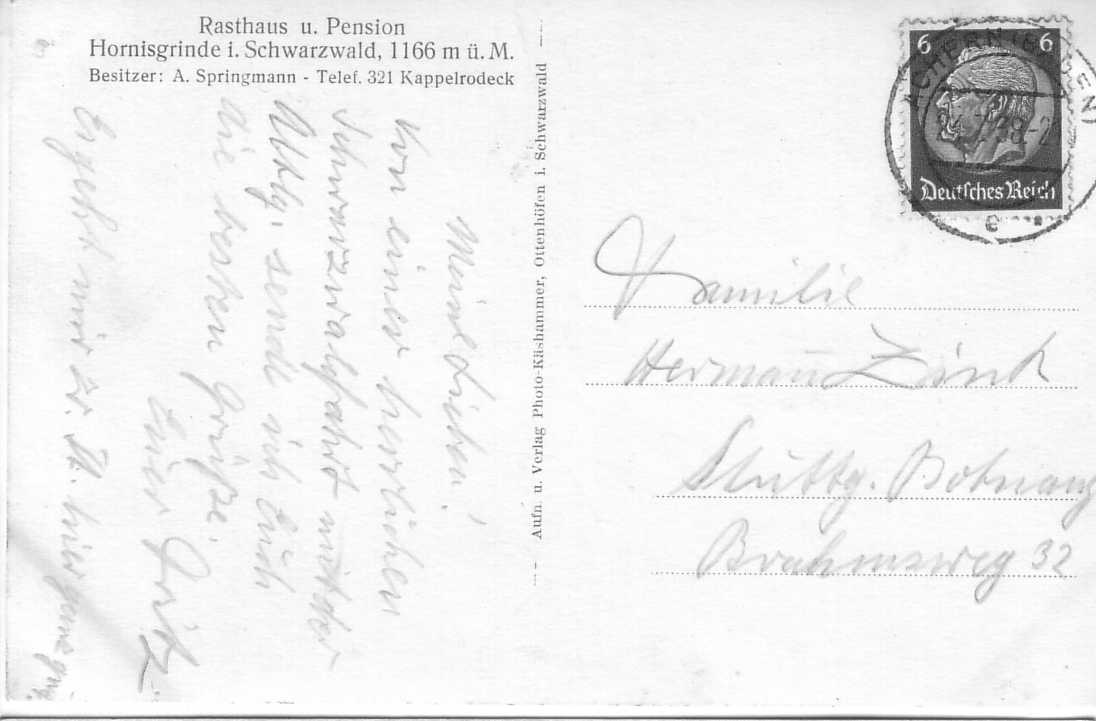 Rasthaus u. Pension
Hornisgrinde i. Schwarzwald, 1166 m ü. M.
Besitzer: A. Springmann - Telef. 321 Kappelrodeck
Meine Lieben!
Von einer herrlichen
Schwarzwaldfahrt mit der
Abtlg. sende ich Euch
die besten Grüße.
Euer Fritz
Es geht mir z. Z. hier ganz gut.
Aufn. u. Verlag Photo-Käshammer, Ottenhöfen i. Schwarzwald
6 6
Deutsches Reich
ACHERN (BADEN)
38-2
e
Familie
Hermann Zink
Stuttg. Botnang
Brahmsweg 32